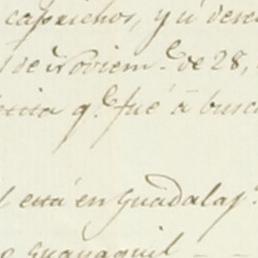 capuchos, y ú dese
de Noviem.e de 28,
q.e fué á busc
l está en Guadalaj.a
Guayaquil - -